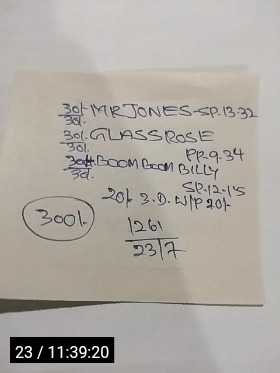 30/- MR JONES-SP.13-32
30/-
30/. GLASSROSE
30/. PR.9-34
30/- BOOM BOOM BILLY
30/. SP.12-15
20/- 3.D. W/P 20/-
300/-
1261
23/7
23 / 11:39:20